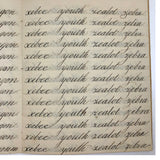 xebec youth zealot zebra
xebec youth zealot zebra
xebec youth zealot zebra
xebec youth zealot zebra
xebec youth zealot zebra
xebec youth zealot zebra
xebec youth zealot zebra
xebec youth zealot zebra
xebec youth zealot zebra
xebec youth zealot zebra